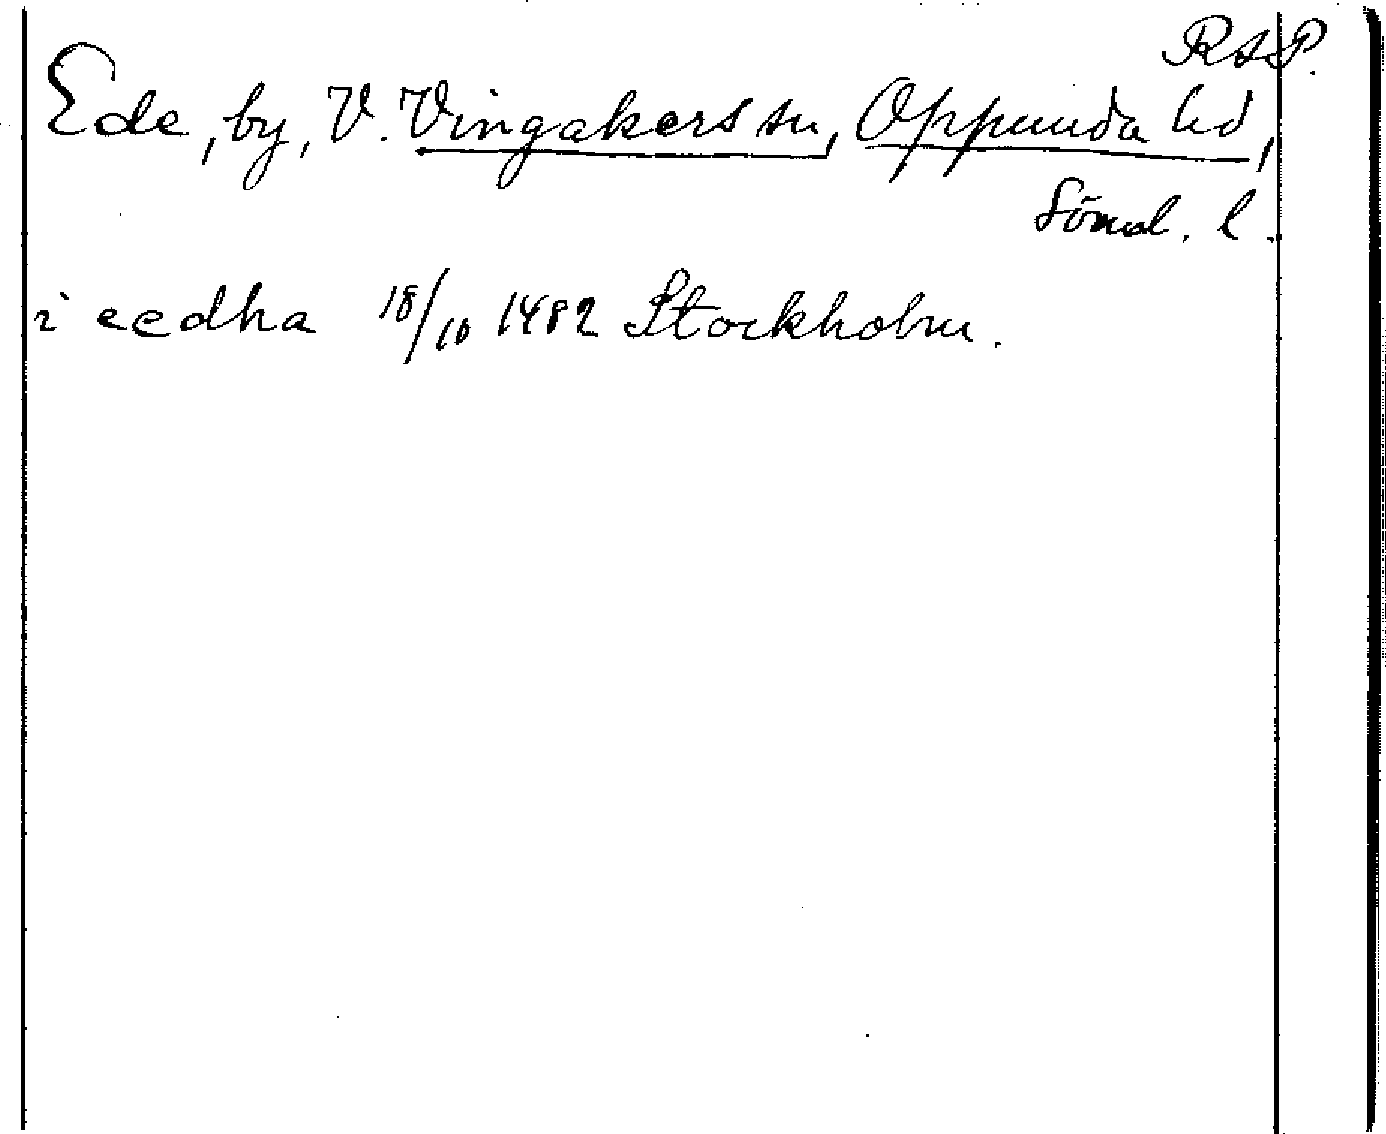 RAP.
Ede, by, V. Vingåkers sn, Oppunda hd,
Sömdl. l.
i eedha 18/10 1482 Stockholm.